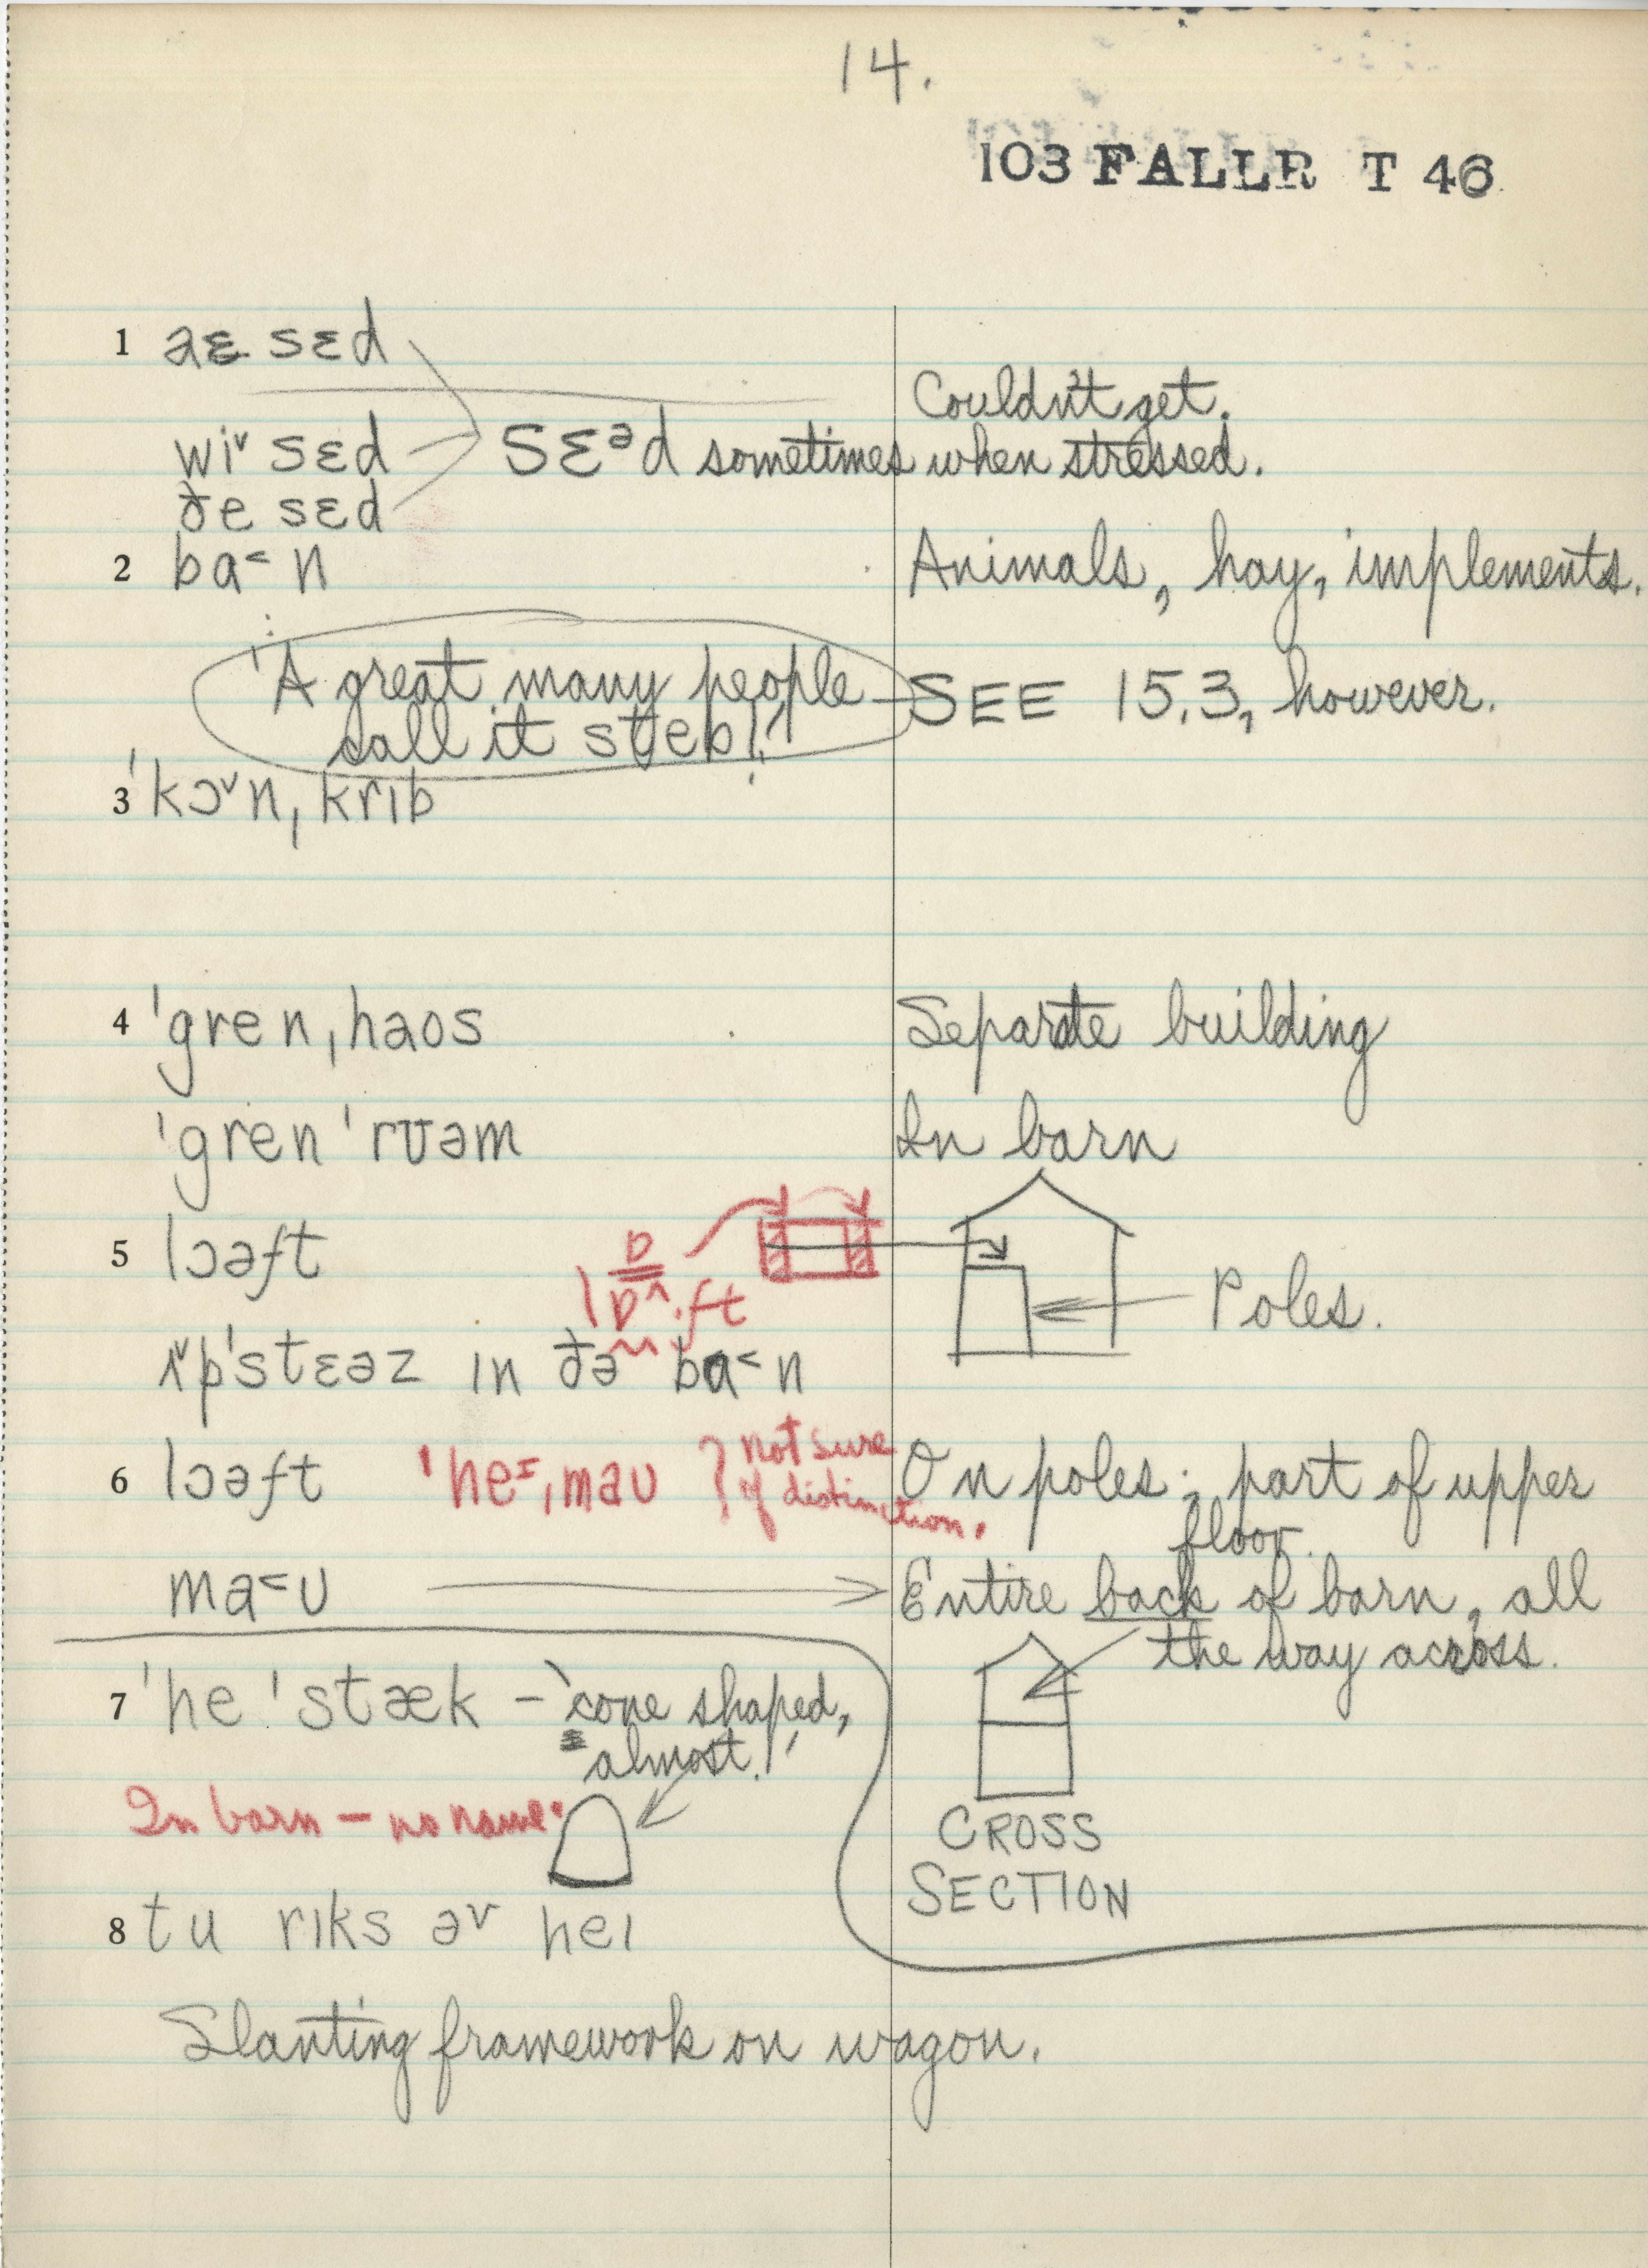 14.
103 FALLR T 46
1 aɛ sɛd
Couldn't get.
wiᵛ sɛd sɛᵊd sometimes when stressed.
ðe sɛd
2 ba˂n Animals, hay, implements.
'A great many people SEE 15.3, however.
call it steb!'
3 ˈkɔᵛnˌkrɪb
4 ˈgrenˌhaos Separate building
ˈgren ˈrʊəm In barn
5 lɔəft
lɒ^.ft Poles.
ʌᵛpˈstɛəz ɪn ðə ba˂n
6 lɔəft ˈheɪˌmaʊ ? not sure of distinction. On poles; part of upper
floor.
ma˂ʊ Entire back of barn, all
the way across.
7 ˈhe ˈstæk – 'cone shaped,
almost.'
In barn – no name.
CROSS
SECTION
8 tu rɪks əv heɪ
Slanting framework on wagon.